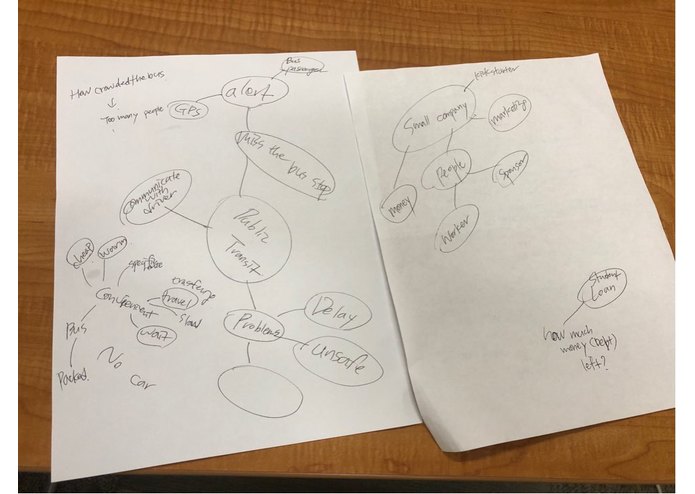 How crowded the bus
Too many people
GPS
alert
Bus
passenger
Miss the bus stop
Communicate
with
driver
Public
Transit
cheap
warm
Convenient
transfer
travel
slow
wait
Bus
Packed
No
Car
Problems
Delay
unsafe
kickstarter
Small company
marketing
People
Sponsor
money
Worker
Student
Loan
how much
money (Debt)
left?